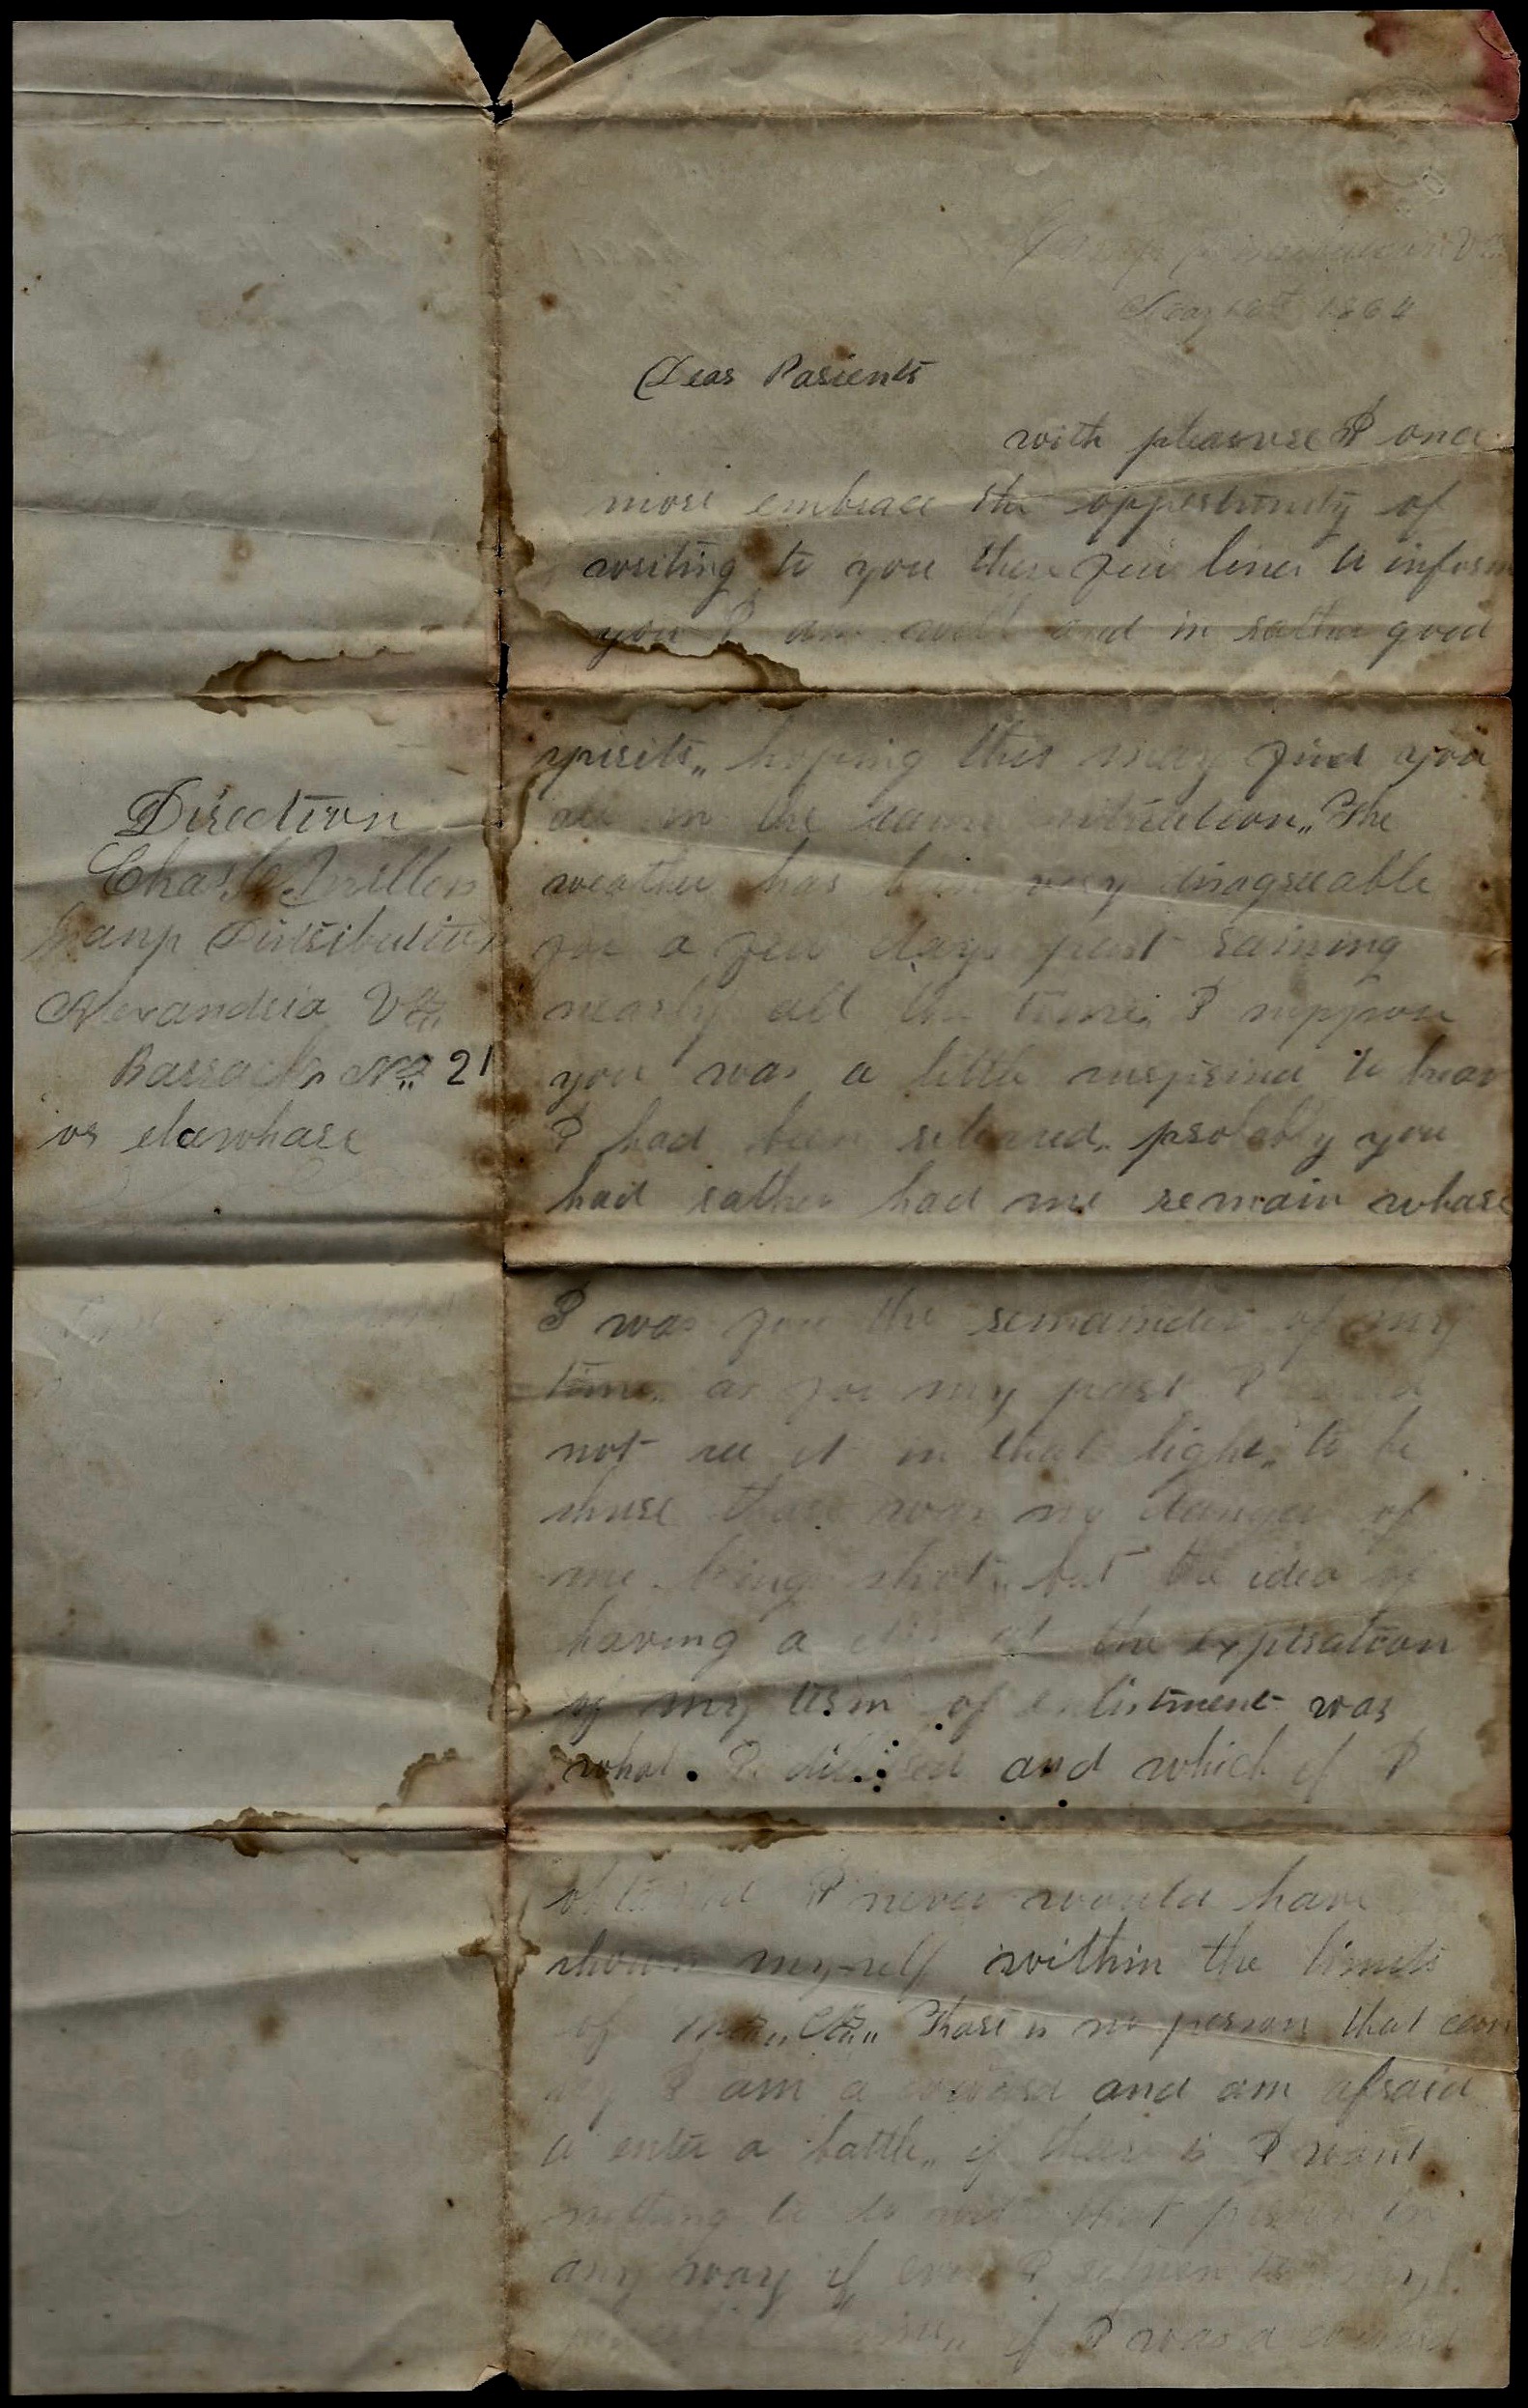 Camp Distribution Va,,
May 18th 1864
Dear Parients
with pleasure I once
more embrace the oppertunity of
writing to you these few lines to inform
you I am well and in rather good
spirits,, hoping this may find you
all in the same situation,, The
weather has been very disagreeable
for a few days past raining
nearly all the time, I suppose
you was a little surprised to hear
I had been released,, probably you
had rather had me remain whare
I was for the remainder of my
time,, as for my part I
not see it in that light,, to be
shure thare was no danger of
me being shot,, but the idea of
having a at the expiration
of my term of enlistment was
what I and which if I
obtained I never would have
shown myself within the limits
of Thare is no person that can
say I am a coward and am afraid
to enter a battle,, if thare is I want
nothing to do with that person in
any way if ever I return to my
if I was a coward
Direction
Chas
Camp Distribution
Alexandria Va,,
Barracks No,, 21
or elsewhare